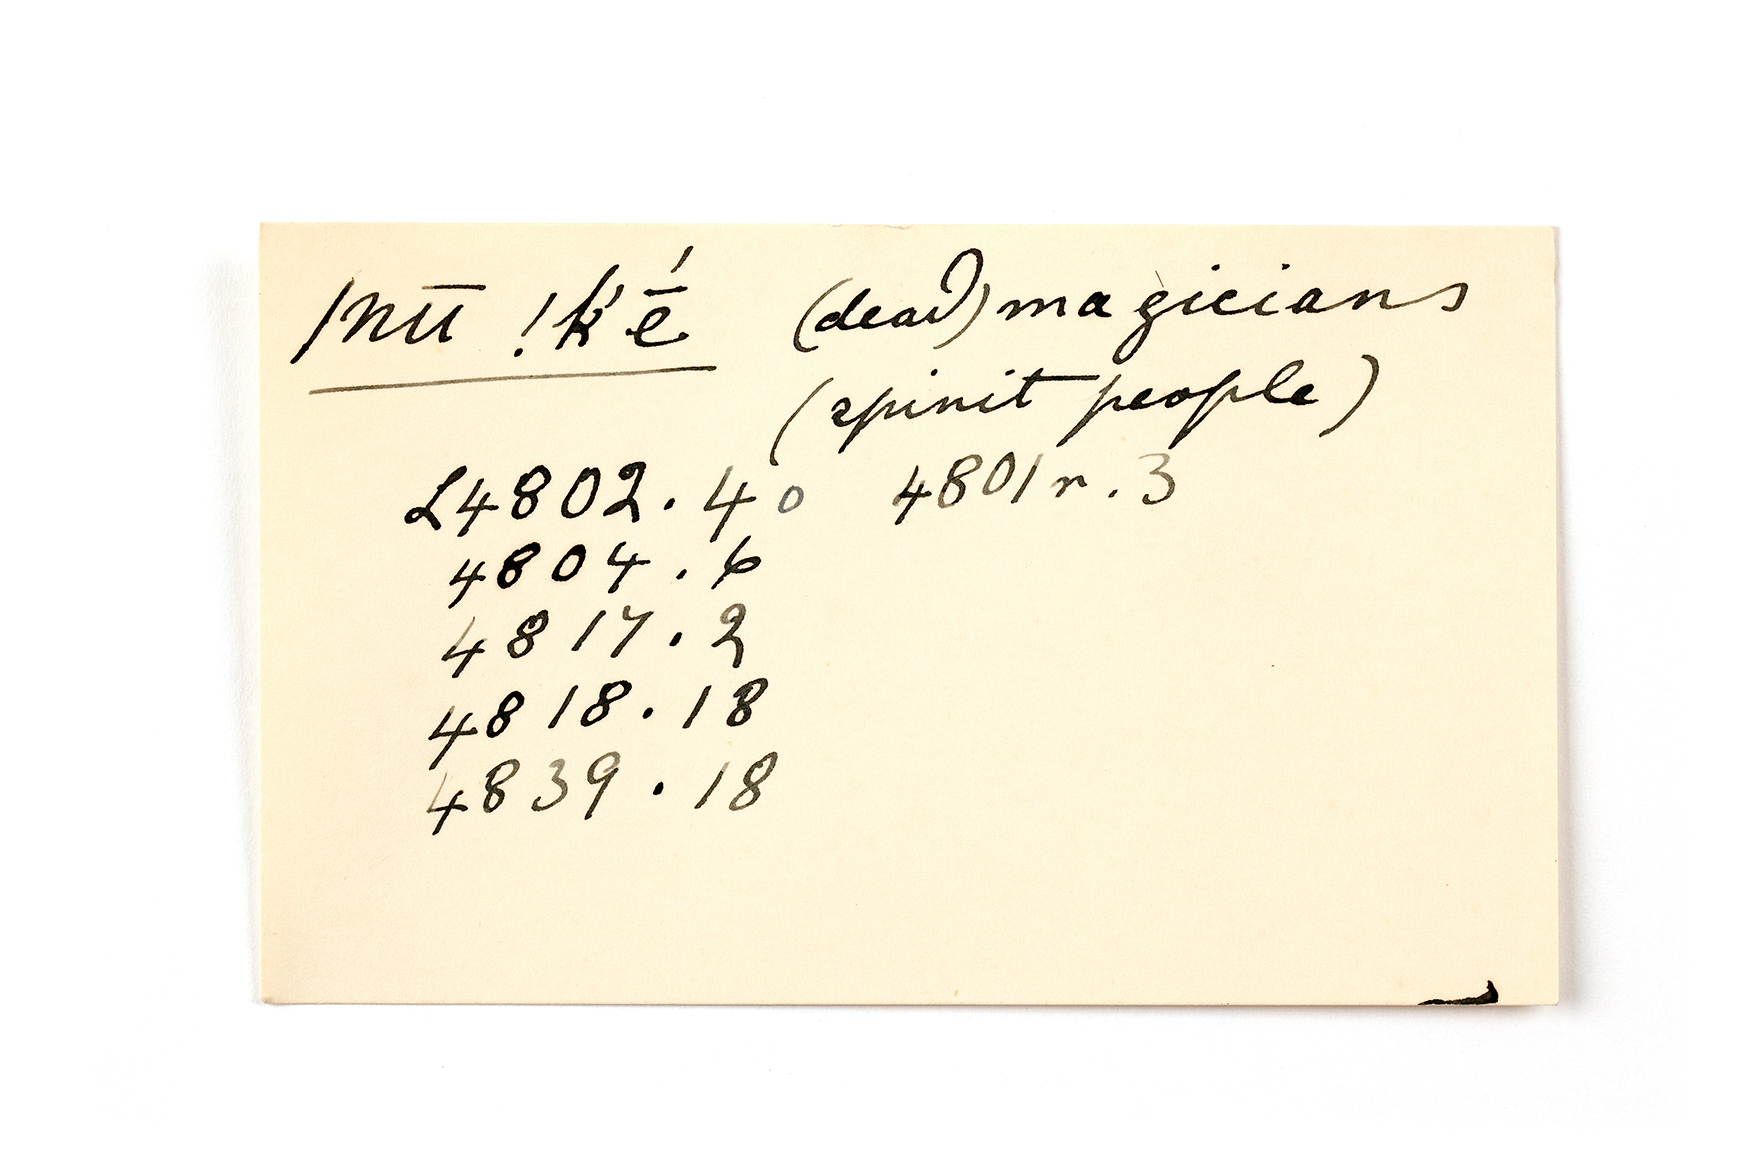 /nū !k'ḗ (dead) magicians
(spirit people)
L4802.40 4801r.3
4804.6
4817.2
4818.18
4839.18